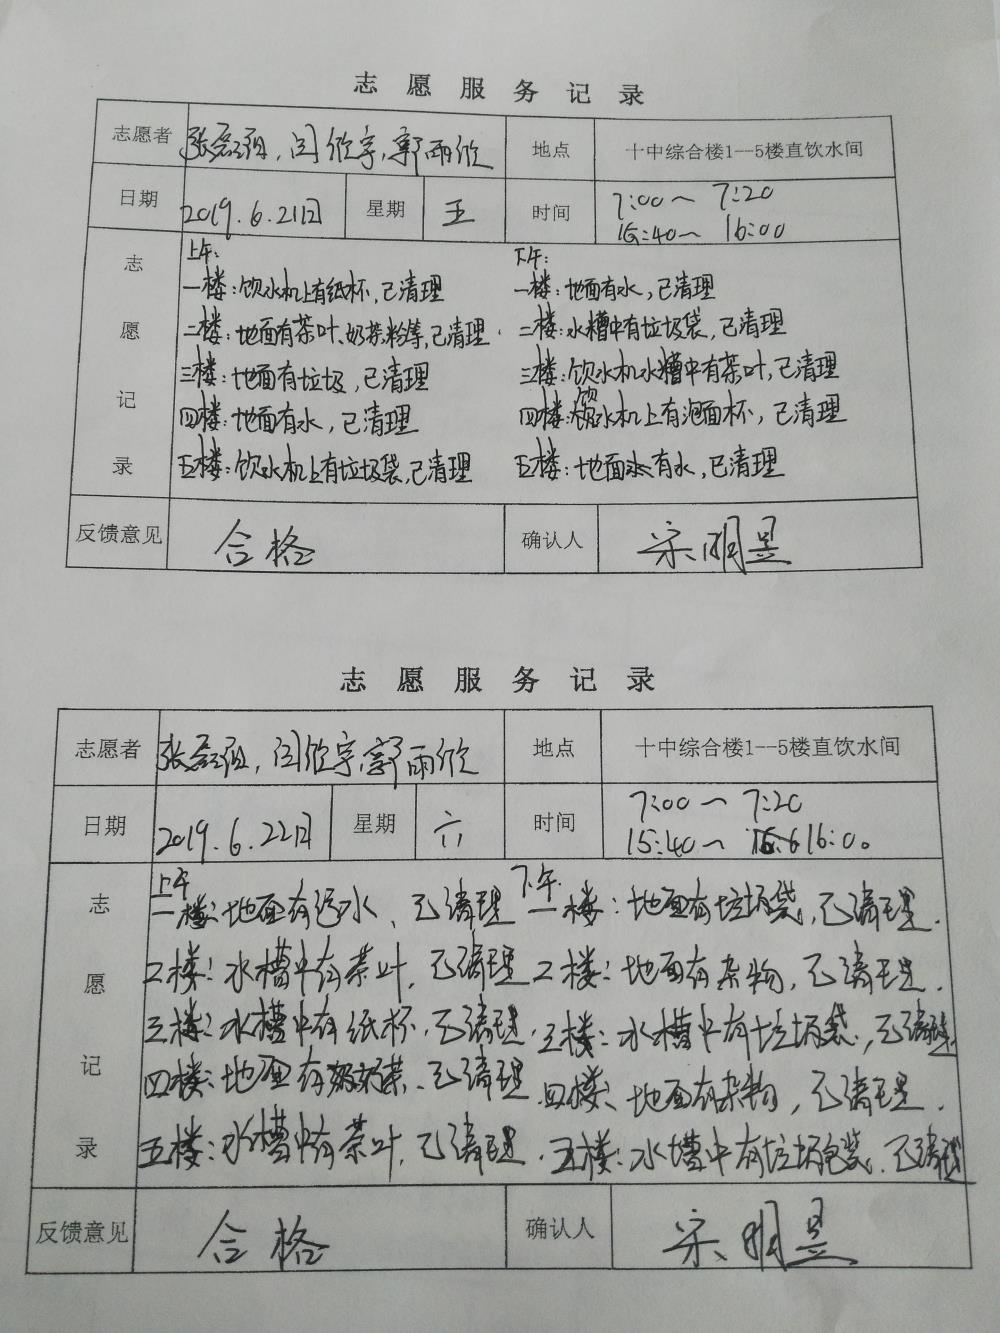 志愿服务记录
志愿者 张磊组，闫欣宇，郭雨欣 地点 十中综合楼1--5楼直饮水间
日期 2019.6.21日 星期 五 时间 7:00～7:20
15:40～16:00
志愿记录
上午： 下午：
一楼：饮水机上有纸杯，已清理 一楼：地面有水，已清理
二楼：地面有茶叶、奶茶粉等，已清理. 二楼：水槽中有垃圾袋，已清理
三楼：地面有垃圾，已清理 三楼：饮水机水槽中有茶叶，已清理
四楼：地面有水，已清理 四楼：饮水机上有泡面杯，已清理
五楼：饮水机上有垃圾袋，已清理 五楼：地面有水，已清理
反馈意见 合格 确认人 宋明昱
志愿服务记录
志愿者 张磊组，闫欣宇，郭雨欣 地点 十中综合楼1--5楼直饮水间
日期 2019.6.22日 星期 六 时间 7:00～7:20
15:40～16:00
志愿记录
上午 下午
一楼：地面有污水、已清理 一楼：地面有垃圾袋，已清理.
二楼：水槽中有茶叶，已清理 二楼：地面有杂物，已清理.
三楼：水槽中有纸杯，已清理. 三楼：水槽中有垃圾袋，已清理
四楼：地面有奶茶、已清理 四楼：地面有杂物，已清理.
五楼：水槽中有茶叶，已清理. 五楼：水槽中有垃圾包装，已清理
反馈意见 合格 确认人 宋明昱